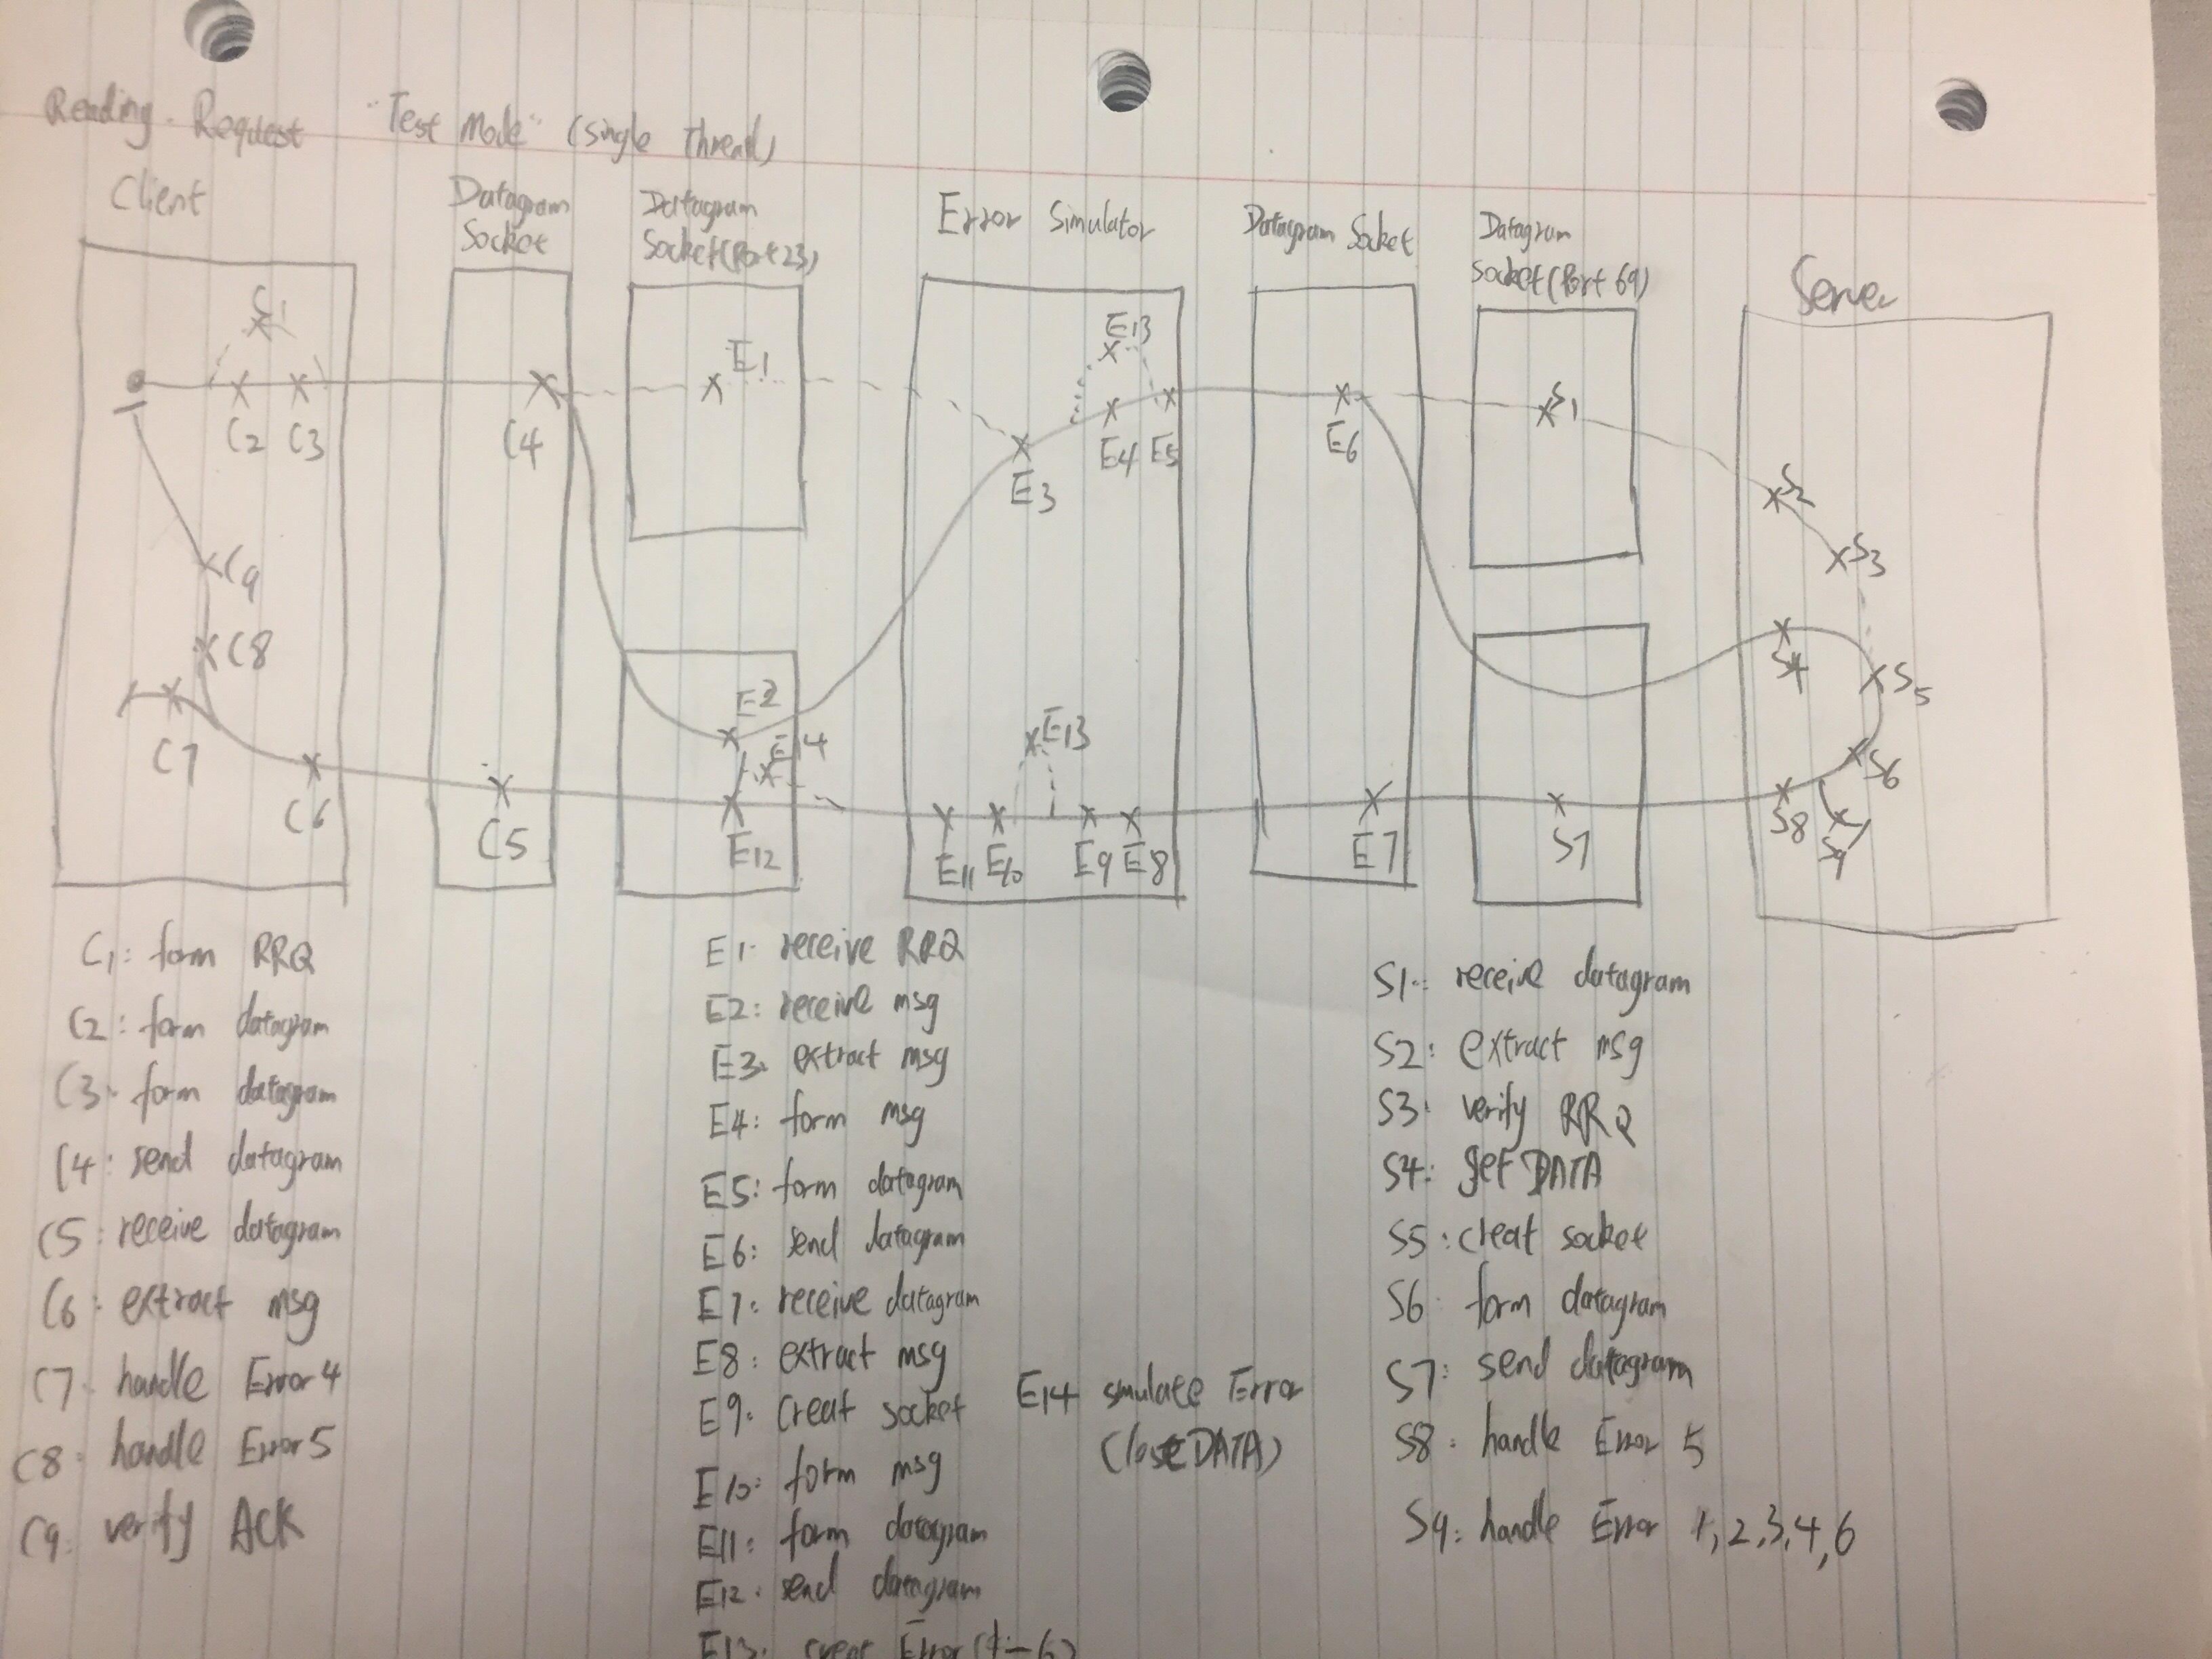 Reading Request "Test Mode" (single Thread)
Client
Datagram
Socket
Datagram
Socket(Port 23)
Error Simulator
Datagram Socket
Datagram
Socket(Port 69)
Server
C4
E1
E13
E3
E4 E5
E6
S1
S2
S3
S4
S5
S6
S7
S8
S9
C2 C3
C9
C8
C7
C6
C5
E2
E14
E12
E13
E11 E10 E9 E8
E7
C1: form RRQ
C2: form datagram
C3: form datagram
C4: send datagram
C5: receive datagram
C6: extract msg
C7: handle Error 4
C8: handle Error 5
C9: verify ACK
E1: receive RRQ
E2: receive msg
E3: extract msg
E4: form msg
E5: form datagram
E6: send datagram
E7: receive datagram
E8: extract msg
E9: creat socket
E10: form msg
E11: form datagram
E12: send datagram
E13: creat Error
E14 smulate Error
(lost DATA)
S1: receive datagram
S2: extract msg
S3: verify RRQ
S4: get DATA
S5: creat socket
S6: form datagram
S7: send datagram
S8: handle Error 5
S9: handle Error 1,2,3,4,6